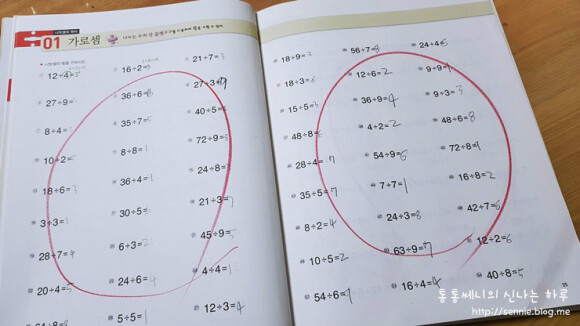 01 가로셈
12÷4=3
16÷2=8
21÷7=3
27÷9=3
36÷6=6
27÷3=9
8÷4=2
35÷7=5
40÷5=8
10÷2=5
8÷8=1
72÷9=8
18÷6=3
36÷4=
24÷8=3
3÷3=1
30÷5=6
21÷3=7
28÷7=4
6÷3=2
45÷9=5
20÷4=5
24÷6=4
4÷4=1
5÷5=1
12÷3=4
18÷9=2
56÷7=8
24÷4=6
18÷3=6
12÷6=2
9÷9=1
15÷5=3
36÷9=4
9÷3=3
48÷8=6
4÷2=2
48÷6=8
28÷4=7
54÷9=6
72÷8=9
35÷5=7
7÷7=1
16÷8=2
8÷2=4
24÷3=8
42÷7=6
10÷5=2
63÷9=7
12÷2=6
54÷6=9
16÷4=4
40÷8=5
통통쎄니의 신나는 하루
http://sennie.blog.me